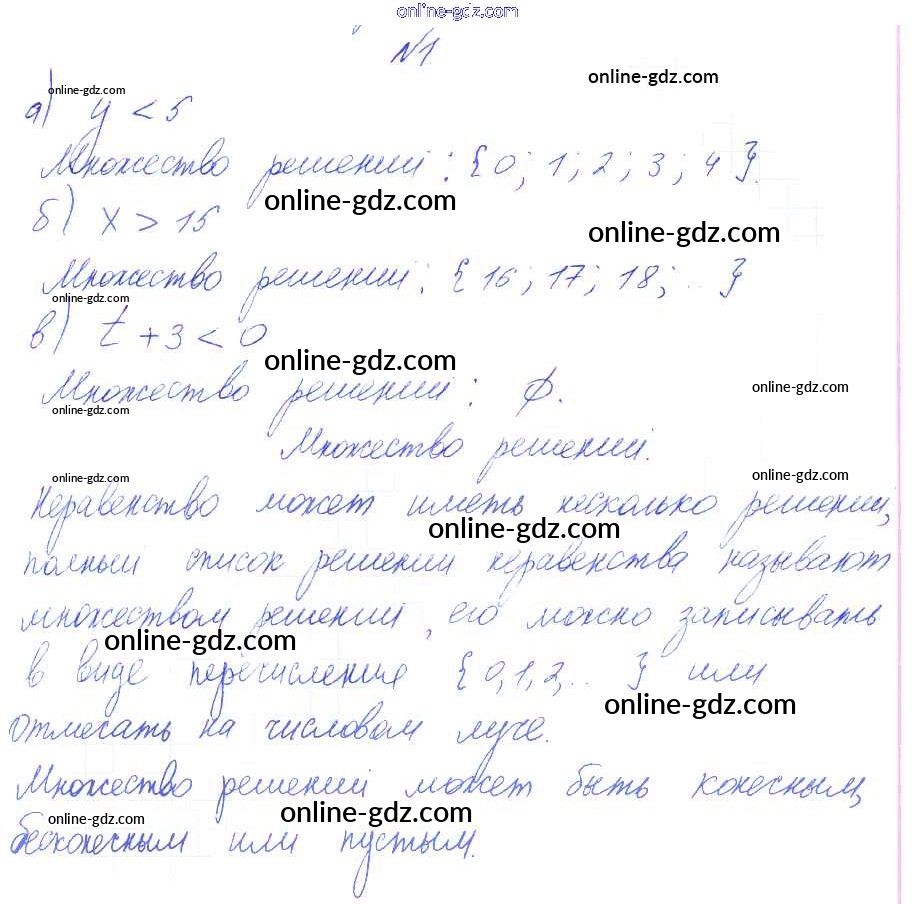 online-gdz.com
№1.
online-gdz.com
online-gdz.com
а) y < 5
Множество решений: {0; 1; 2; 3; 4}.
online-gdz.com
б) x > 15
online-gdz.com
Множество решений: {16; 17; 18; ...}
online-gdz.com
в) t + 3 < 0
online-gdz.com
Множество решений: ∅.
online-gdz.com
online-gdz.com
Множество решений.
online-gdz.com
online-gdz.com
Неравенство может иметь несколько решений,
online-gdz.com
полный список решений неравенства называют
множеством решений, его можно записывать
online-gdz.com
в виде перечисления {0,1,2,... } или
online-gdz.com
отмечать на числовом луче.
Множество решений может быть конечным,
online-gdz.com
online-gdz.com
бесконечным или пустым.
online-gdz.com
online-gdz.com